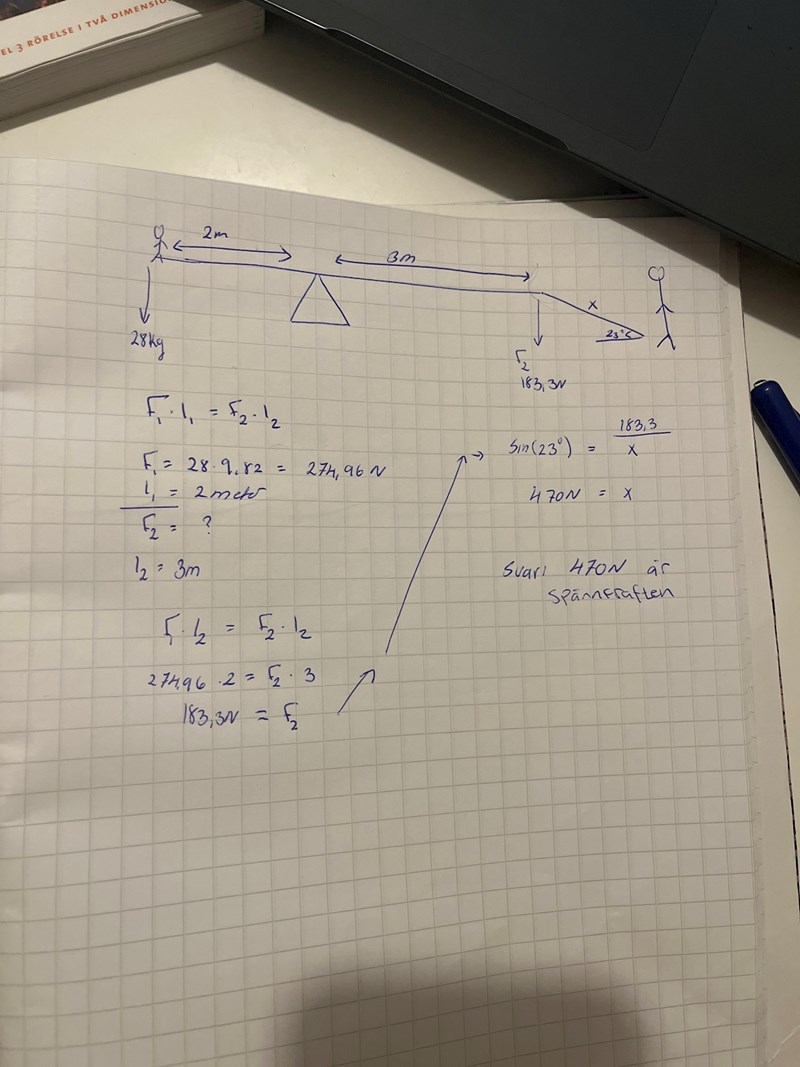 EL 3 RÖRELSE I TVÅ DIMENSIO
2m
3m
x
23°
28kg
F₂
183,3N
F₁ · l₁ = F₂ · l₂
F₁ = 28 · 9,82 = 274,96 N
l₁ = 2 meter
F₂ = ?
l₂ = 3m
F₁ · l₂ = F₂ · l₂
274,96 · 2 = F₂ · 3
183,3N = F₂
→ Sin(23°) = 183,3 / x
470N = x
Svar: 470N är
spännkraften